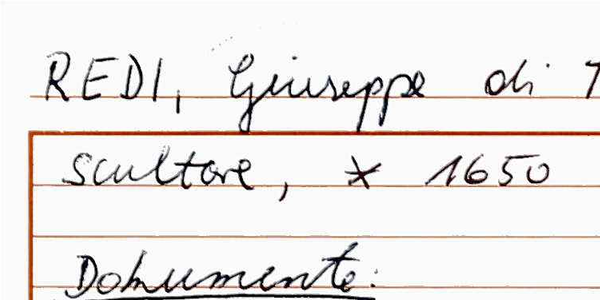 REDI, Giuseppe di
scultore, * 1650
Dokumente: